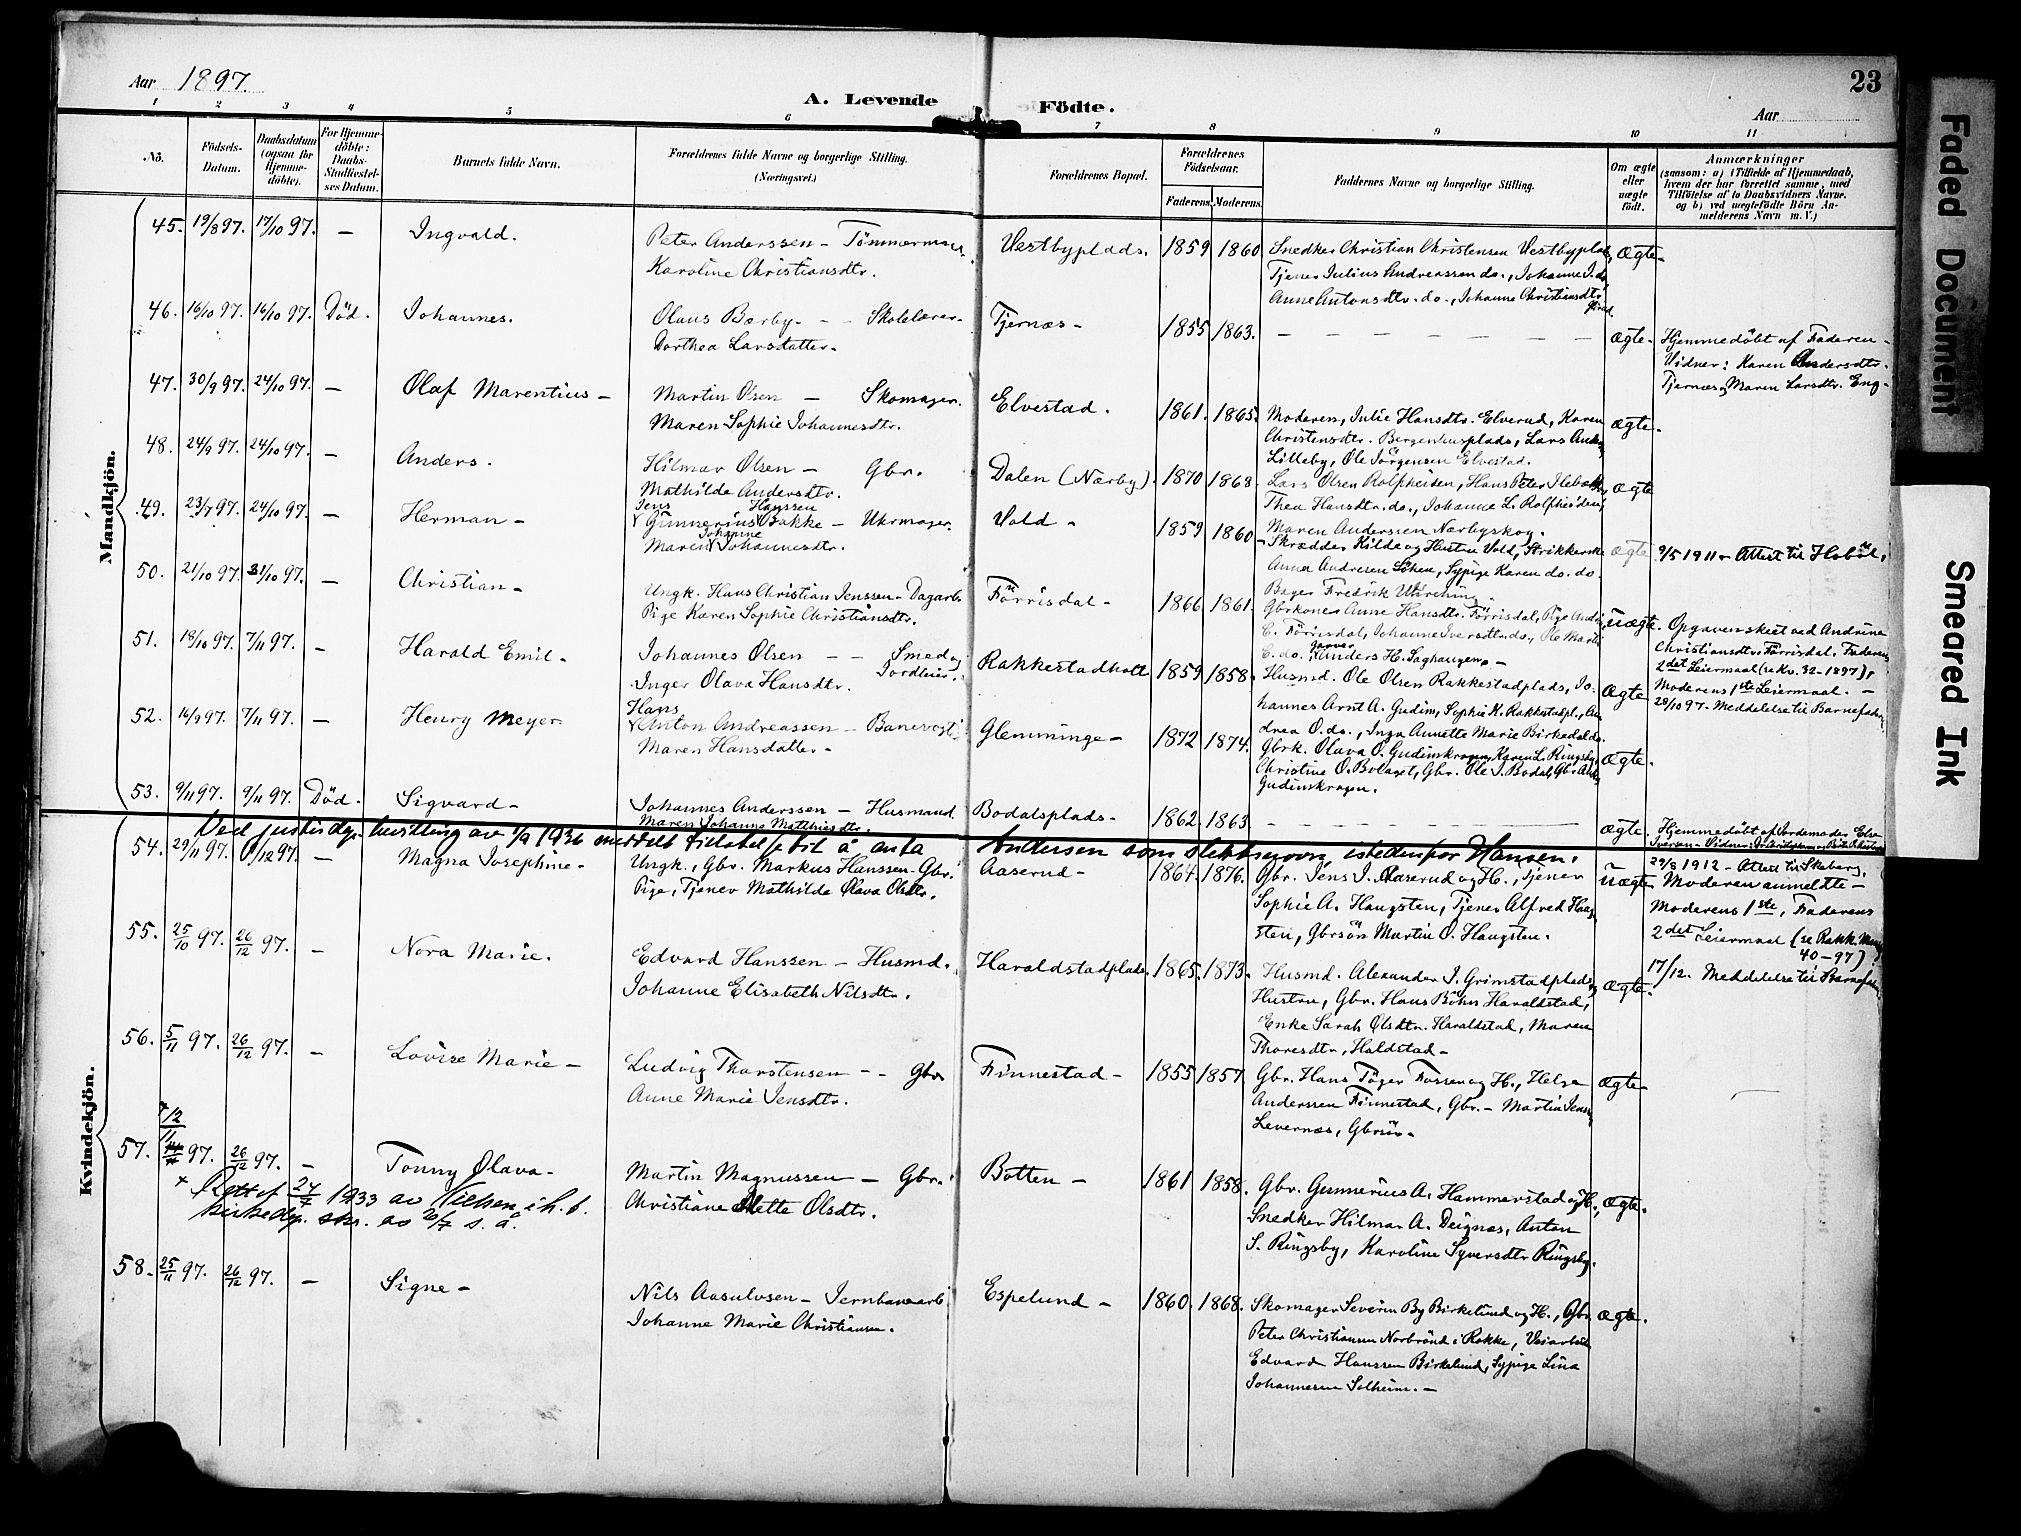 Aar 1897.
A. Levende Födte.
Aar
23
1 2 3 4 5 6 7 8 9 10 11
No.
Födsels-Datum.
Daabsdatum (ogsaa for Hjemme-döbte).
For Hjemme-döbte: Daabs-Stadfæstel-ses Datum.
Barnets fulde Navn.
Forældrenes fulde Navne og borgerlige Stilling. (Næringsvei.)
Forældrenes Bopæl.
Forældrenes Födselsaar.
Faderens. Moderens.
Faddernes Navne og borgerlige Stilling.
Om ægte eller uægte födt.
Anmærkninger (saasom: a) i Tilfælde af Hjemmedaab, hvem der har forrettet samme, med Tilföielse af to Daabsvidners Navne. og b) ved uægtefödte Börn Anmelderens Navn m. V.)
Mandkjön.
45. 19/8 97. 17/10 97. – Ingvald. Peter Anderssen – Tömmermand. Vestbyplads. 1859 1860 Snedker Christian Christensen Vestbyplads, Ægte.
Karoline Christiansdtr. Tjener Julius Andreassen do., Johanne J. do.
Anne Antonsdtr. do., Johanne Christiansdtr.
46. 16/10 97. 16/10 97. Död. Johannes. Olaus Bærby – – Skolelærer. Tjernæs – 1855 1863. – – – – – – ægte. Hjemmedöbt af Faderen –
Dorthea Larsdatter. Vidner: Karen Andersdtr.
Tjernæs, Maren Larsdtr. Eng –
47. 30/9 97. 24/10 97. – Olaf Marentius – Martin Olsen – Skomager. Elvestad. 1861. 1865. Moderen, Julie Hansdtr. Elverud, Karen ægte.
Maren Sophie Johannesdtr. Christensdtr. Bergenhusplads, Lars
Lilleby, Ole Jörgensen Elvestad.
48. 24/9 97. 24/10 97. – Anders. Hilmar Olsen – Gbr. Dalen (Nærby). 1870 1868. Lars Olsen Rolfsheisen, Hans Peter ægte
Mathilde Andersdtr. Thea Hansdtr. do., Johanne L.
Maren Anderssen Nærbyskog.
49. 23/7 97. 24/10 97. – Herman – Jens Hanssen
Gunnerius Bakke – Uhrmager. Vold – 1859 1860 – Skrædder Kilde og Hustru Vold, Strikkerske ægte 9/5 1911 – Attest til Hobøl.
Johanne
Maren Johannesdtr. Anna Andresen Söhen, Sypige Karen do. do.
Bager Fredrik
50. 21/10 97. 31/10 97. – Christian – Ungk. Hans Christian Jenssen – Dagarb. Förrisdal – 1866 1861. Gbrkone Anne Hansdtr. Förrisdal, Pige uægte. Opgaven skeet ved Andrine
Pige Karen Sophie Christiansdtr. C. Förrisdal, Johanne Iversdtr. do., Ole Martin Christiansdtr. Förrisdal, Faderens
C. do., Anders H. Saghaugen – 2det Leiermaal (se No. 32-1897),
Moderens 1ste Leiermaal. –
28/10 97. Meddelelse til Barnefader.
51. 18/10 97. 7/11 97. – Harald Emil. Johannes Olsen – – Smed og Jordleier. Rakkestadholt 1859 1858. Husmd. Ole Olsen Rakkestadplads, Jo- Ægte
Inger Olava Hansdtr. hannes Arnt A. Gudim, Sophie K. Rakkestadpl., An-
drea O. do., Inga Annette Marie Birkedal do.
52. 14/9 97. 7/11 97. – Henry Meyer Hans
Anton Andreassen – Banevogt. Glemminge – 1872 1874. Gbrk. Olava O. Gudimkragen, Karen L. Ringsby, ægte.
Maren Hansdatter – Christine O. Bolaget, Gbr. Ole J. Bodal,
Gudimkragen.
53. 9/11 97. 9/11 97. Död. Sigvard – Johannes Anderssen – Husmand Bodalsplads – 1862. 1863 – – – ægte. Hjemmedöbt af Jordemoder
Maren Johanne Matthiasdtr.
Ved justisdep. bevilling av 1/9 1936 meddelt tillatelse til å anta Andersen som slektsnavn, istedenfor Hansen.
Kvindekjön.
54. 29/11 97. 6/12 97. – Magna Josephine – Ungk., Gbr. Markus Hanssen – Gbr. Aaserud – 1864. 1876. Gbr. Jens J. Aaserud og H., Tjener Uægte 29/8 1912 – Attest til Skaberg.
Pige, Tjener Mathilde Olava Olsdtr. Sophie A. Haugsten, Tjener Alfred Haug- Moderen anmeldte –
sten, Gbrsön Martin O. Haugsten. Moderens 1ste, Faderens
2det Leiermaal (se Rakk. 40-97)
17/12. Meddelelse til Barnefader
55. 25/10 97. 26/12 97. – Nora Marie. Edvard Hanssen – Husmd. Haraldstadplads. 1865. 1873. Husmd. Alexander J. Grimstadplads, ægte.
Johanne Elisabeth Nilsdtr. Hustru, Gbr. Hans Böhn Haraldstad,
Enke Sarah Olsdtr. Haraldstad, Maren
Thoresdtr, Haldstad –
56. 5/11 97. 26/12 97. – Lovise Marie – Ludvig Thorstensen – – Gbr Finnestad – 1855 1857 Gbr. Hans Töger Fossen og H., Helge ægte
Anne Marie Jensdtr. Anderssen Finnestad, Gbr. – Martin
Levernæs, Gbrsön –
57. 2/11 97. 26/12 97. – Tonny Olava – Martin Magnussen – Gbr. Botten – 1861 1858. Gbr. Gunnerius A. Hammerstad og H., ægte.
Christiane Mette Olsdtr. Snedker Hilmar A. Deignæs, Anton
S. Ringsby, Karoline Syversdtr Ringsby.
× Rettet 24/7 1933 av Nielsen i h. t.
kirkedep. skr. av 20/7 s. å.
58. 25/11 97. 26/12 97. – Signe – Nils Aasulvsen – Jernbanearb. Espelund – 1860. 1868. Skomager Severin By Birkelund og H., Gbr ægte.
Johanne Marie Christiansen. Peter Christiansen Norbrönd i Rakke, Veiarbeider
Edvard Hanssen Birkelund, Sypige Lina
Johannesen Solheim. –
Faded Document
Smeared Ink